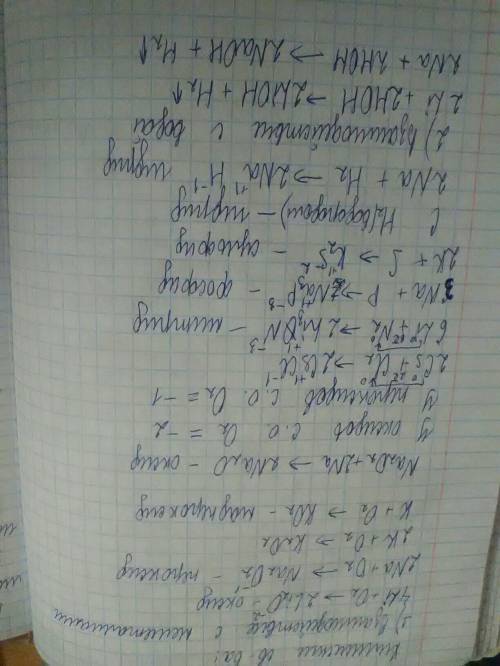 Химические св-ва:
1) Взаимодействие с неметаллами
4Li + O₂ → 2Li₂O - оксид
2Na + O₂ → Na₂O₂ - пероксид
2K + O₂ → K₂O₂
K + O₂ → KO₂ - надпероксид
Na₂O₂ + 2Na → 2Na₂O - оксид
У оксидов с.о. O₂ = -2
У пероксидов с.о. O₂ = -1
2Cs⁰ + Cl₂⁰ → 2Cs⁺¹Cl⁻¹
6Li⁰ + N₂⁰ → 2Li₃⁺¹N⁻³ - нитрид
3Na + P → Na₃⁺¹P⁻³ - фосфид
2K + S → K₂⁺¹S⁻² - сульфид
С H₂(водородом) - гидрид
2Na + H₂ → 2Na⁺¹H⁻¹ гидрид
2) Взаимодействие с водой
2Li + 2HOH → 2LiOH + H₂↑
2Na + 2HOH → 2NaOH + H₂↑